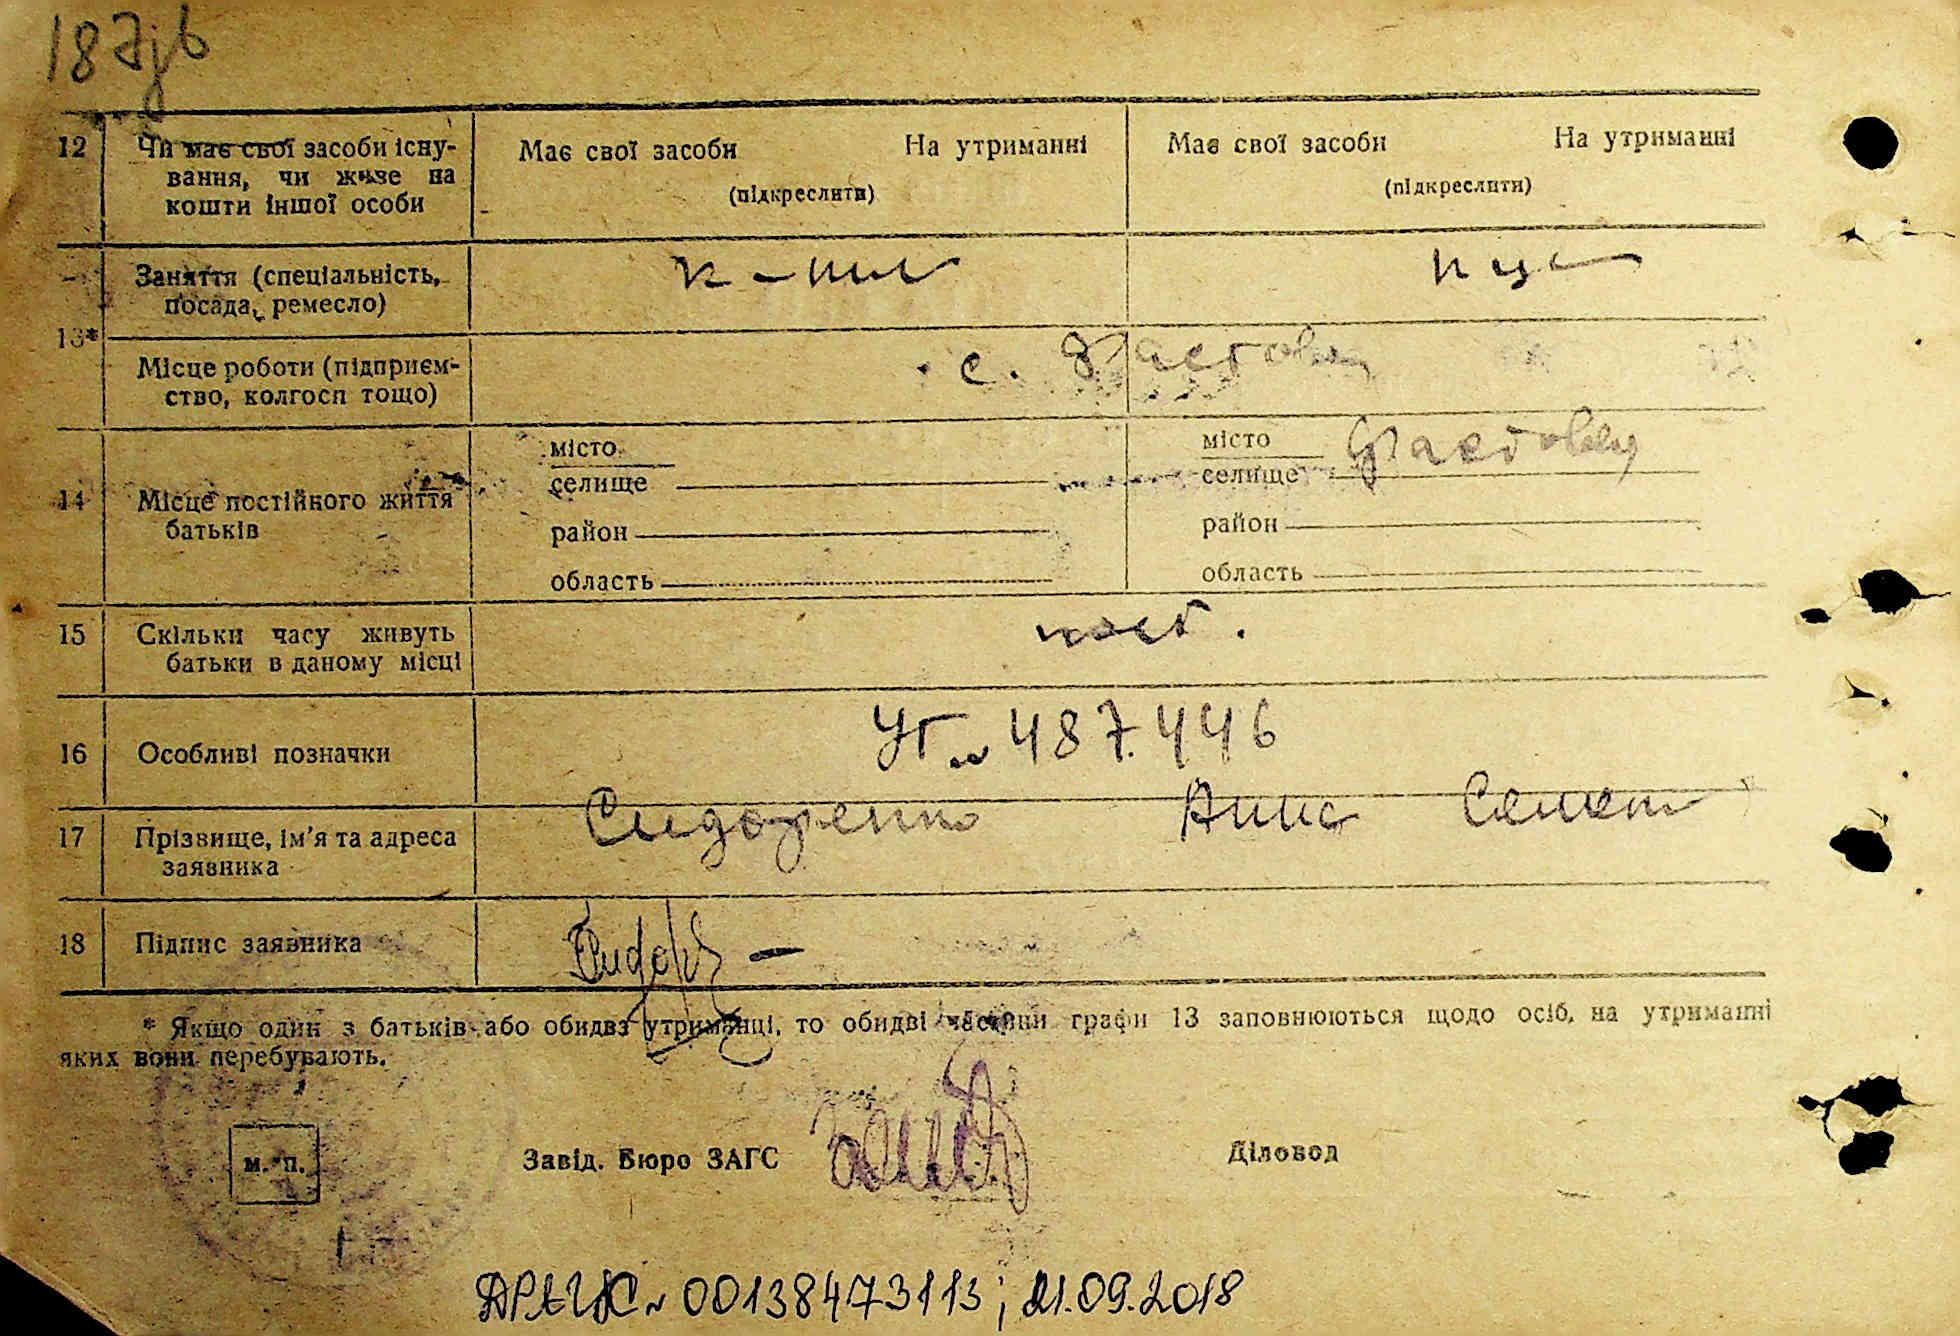 187
12 Чи має свої засоби існу- Має свої засоби На утриманні Має свої засоби На утриманні
вання, чи живе на (підкреслити) (підкреслити)
кошти іншої особи
Заняття (спеціальність,
посада, ремесло)
13*
Місце роботи (підприєм- с.
ство, колгосп тощо)
місто місто
14 Місце постійного життя селище селище
батьків район район
область область
15 Скільки часу живуть пост.
батьки в даному місці
16 Особливі позначки УГ № 487446
17 Прізвище, ім'я та адреса Сидоренко Анна Семен
заявника
18 Підпис заявника
* Якщо один з батьків або обидва утриманці, то обидві частини графи 13 заповнюються щодо осіб, на утриманні
яких вони перебувають.
м. п. Завід. Бюро ЗАГС Діловод
ДРАЦС № 00138473113; 21.09.2018